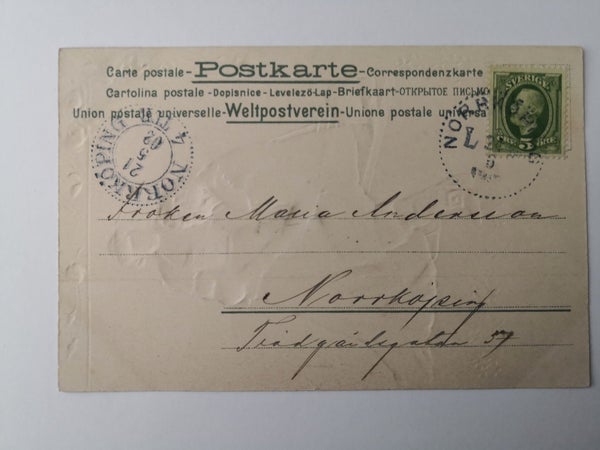 Carte postale-Postkarte-Correspondenzkarte
Cartolina postale-Dopisnice-Levelező-Lap-Briefkaart-ОТКРЫТОЕ ПИСЬМО
Union postale universelle-Weltpostverein-Unione postale universa
SVERIGE
5
ÖRE
NORRKÖPING
L
NORRKÖPING
4 TR
21
5
02
Fröken Maria Andersson
Norrköping
Trädgårdsgatan 57